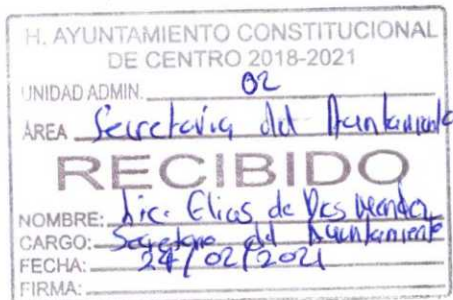 H. AYUNTAMIENTO CONSTITUCIONAL
DE CENTRO 2018-2021
UNIDAD ADMIN. 02
ÁREA Secretaria del Ayuntamiento
RECIBIDO
NOMBRE: Lic. Elias de
CARGO: Secretario del Ayuntamiento
FECHA: 24/02/2021
FIRMA: